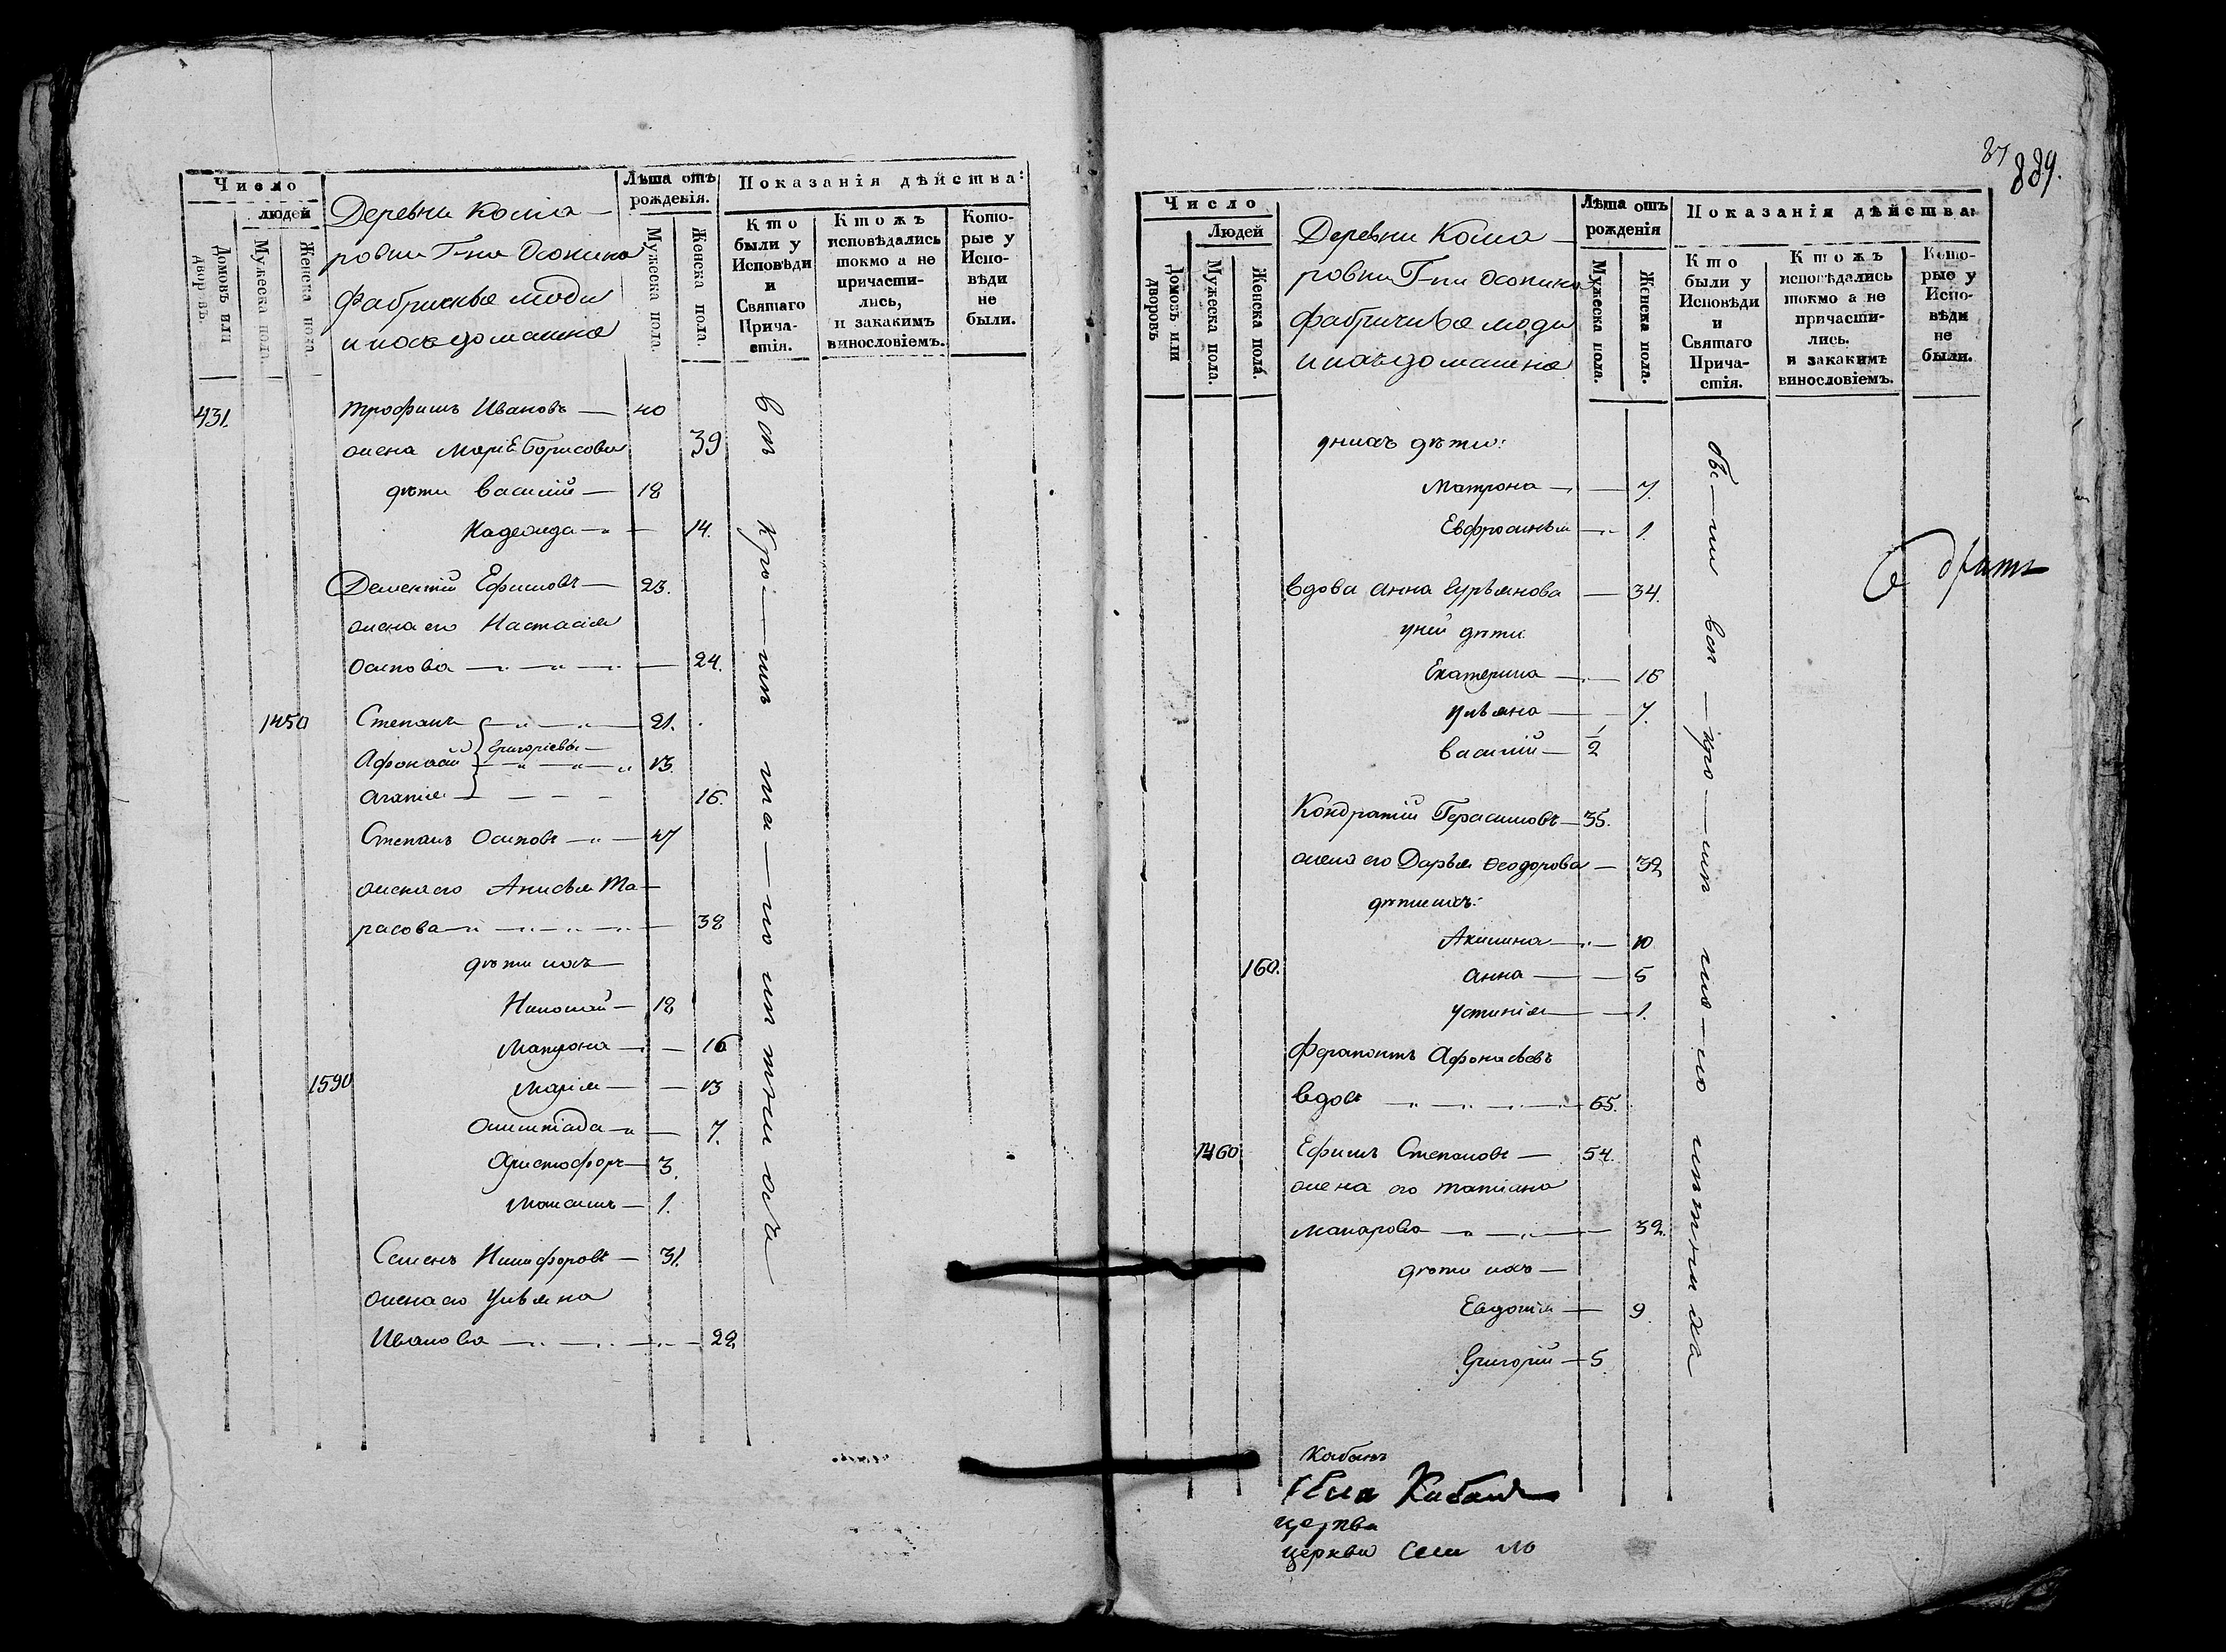 Число
людей
Домовъ или дворовъ.
Мужеска пола.
Женска пола.
Деревни Кома-
ровки Г-на Осокина
Фабричные люди
и ихъ домашніе
Лѣта отъ рожденія.
Мужеска пола.
Женска пола.
Показанія дѣйства:
Кто были у Исповѣди и Святаго Причастія.
Ктожъ исповѣдались токмо а не причастились, и закакимъ винословіемъ.
Которые у Исповѣди не были.
431. Трофимъ Ивановъ — 40
жена Марія Борисова 39
дѣти Василій — 18
Надежда — 14.
Дементій Ефимовъ — 23.
жена его Настасія
Осипова — 24.
1450 Степанъ — 21.
Григорьевы —
Афонасій — 13.
Агапія — 16.
Степанъ Осиповъ — 47
жена его Анисья Та-
расова — 38
дѣти ихъ
Николай — 18
Матрона — 16
1590 Марія — 13
Олимпіада — 7.
Христофоръ — 3.
Максимъ — 1.
Семенъ Никифоровъ — 31.
жена его Ульяна
Иванова — 22
всѣ кромѣ
37
889.
Число
Людей
Домовъ или дворовъ
Мужеска пола.
Женска пола.
Деревни Кома-
ровки Г-на Осокина
фабричные люди
и ихъ домашніе
Лѣта отъ рожденія
Мужеска пола.
Женска пола.
Показанія дѣйства:
Кто были у Исповѣди и Святаго Причастія.
Ктожъ исповѣдались токмо а не причастились. и закакимъ винословіемъ.
Которые у Исповѣди не были.
у нихъ дѣти:
Матрона — 7.
Евфросинья — 1.
вдова Анна Гурьянова — 34.
у ней дѣти
Екатерина — 16
Ульяна — 7.
Василій — 1/2
Кондратій Герасимовъ — 35.
жена его Дарья Ѳеодорова — 32
дѣти ихъ:
Акилина — 10
160. Анна — 5
Устинія — 1.
Ферапонтъ Афонасьевъ
вдовъ — 65.
1460 Ефимъ Степановъ — 54.
жена его Татіана
Макарова — 32.
дѣти ихъ —
Евдокія — 9.
Григорій — 5.
бы—ли всѣ — кро — мѣ
Кабанъ
церкви
церкви